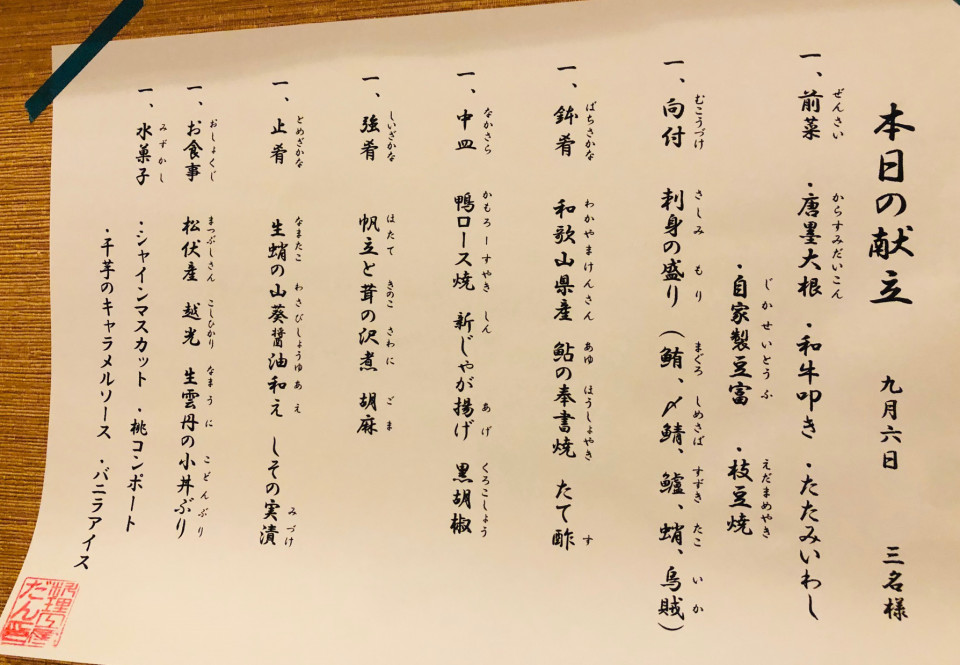 本日の献立 九月六日 三名様
一、前菜 ・唐墨大根 ・和牛叩き ・たたみいわし
ぜんさい からすみだいこん
・自家製豆富 ・枝豆焼
じかせいとうふ えだまめやき
一、向付 刺身の盛り (鮪、〆鯖、鱸、蛸、烏賊)
むこうづけ さしみ もり まぐろ しめさば すずき たこ いか
一、鉢肴 和歌山県産 鮎の奉書焼 たて酢
ばちさかな わかやまけんさん あゆ ほうしょやき す
一、中皿 鴨ロース焼 新じゃが揚げ 黒胡椒
なかさら かもろーすやき しん あげ くろこしょう
一、強肴 帆立と茸の沢煮 胡麻
しいざかな ほたて きのこ さわに ごま
一、止肴 生蛸の山葵醤油和え しその実漬
とめざかな なまたこ わさびしょうゆあえ みづけ
一、お食事 松伏産 越光 生雲丹の小丼ぶり
おしょくじ まつぶしさん こしひかり なまうに こどんぶり
一、水菓子 ・シャインマスカット ・桃コンポート
みずかし
・干芋のキャラメルソース ・バニラアイス
料理屋
だん